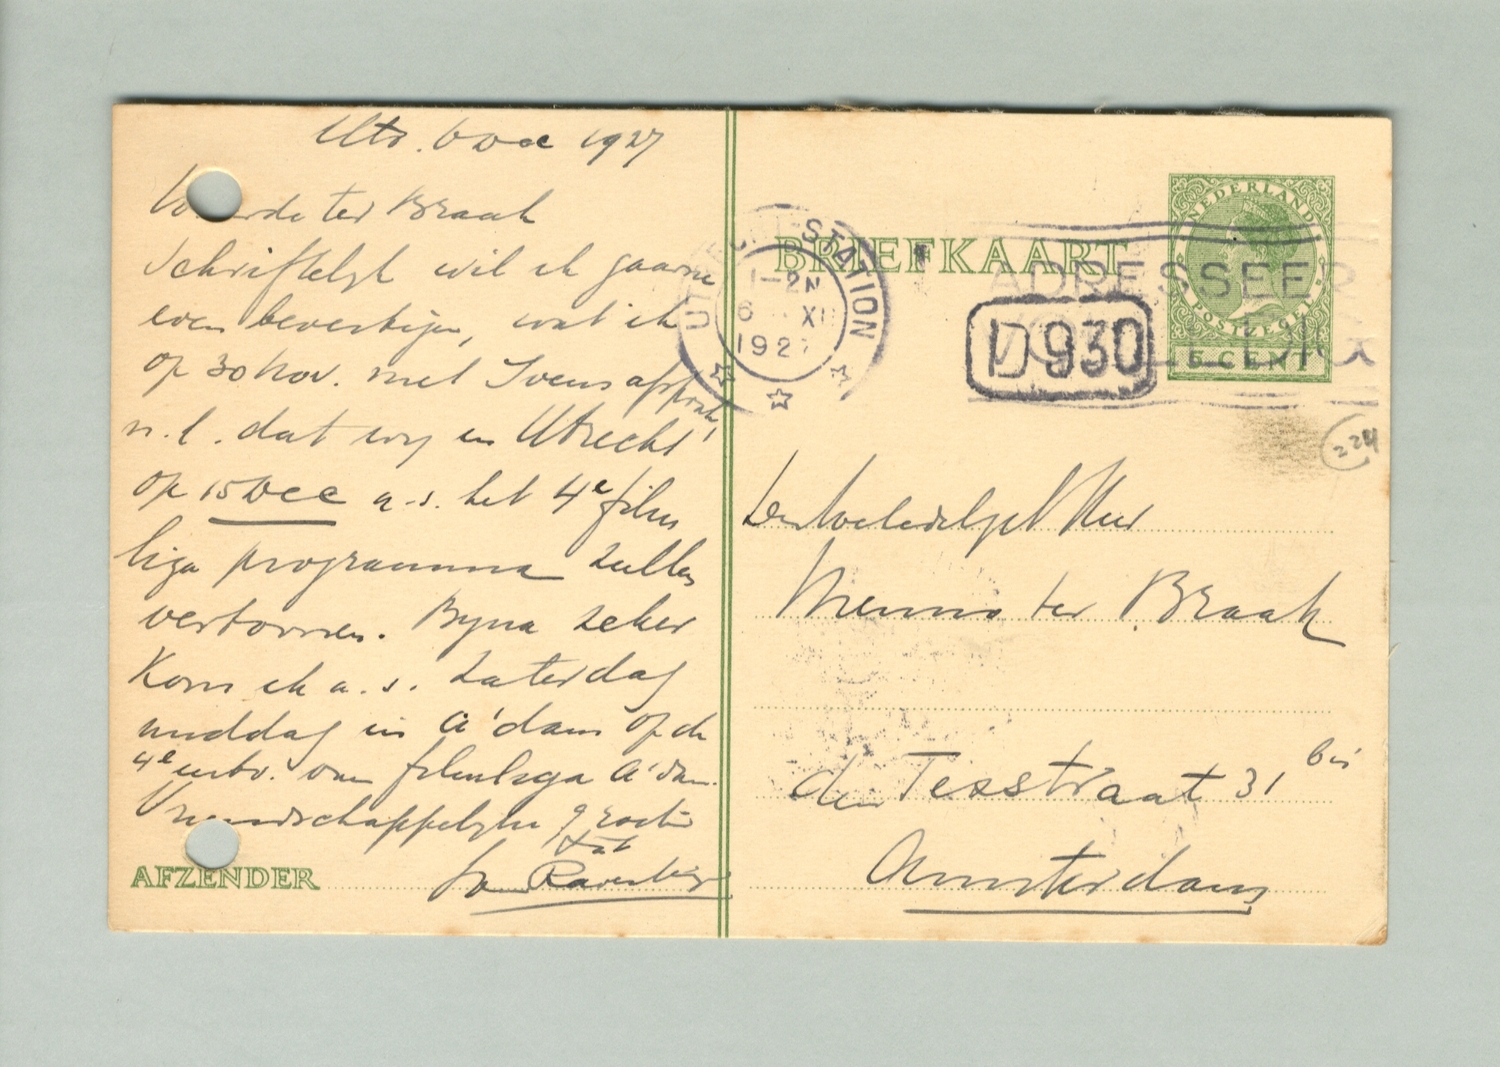 Utr. 6 Dec 1927
Waarde ter Braak
Schriftelijk wil ik gaarne
even bevestigen, wat ik
op 30 Nov. met Ivens afsprak,
n.l. dat wij in Utrecht
op 15 Dec a.s. het 4e film
liga programma zullen
vertoonen. Bijna zeker
kom ik a.s. Zaterdag
middag in A'dam op de
4e uitv. van filmliga A'dam.
Vriendschappelijke groeten
tàt
AFZENDER Jo
BRIEFKAART
NEDERLAND
POSTZEGEL
5 CENT
UTRECHT STATION
1-2N
6 XII
1927
ADRESSEER
VOLLEDIG
D930
224
Den Weledelgeb Heer
Menno ter Braak
den Texstraat 31 bis
Amsterdam